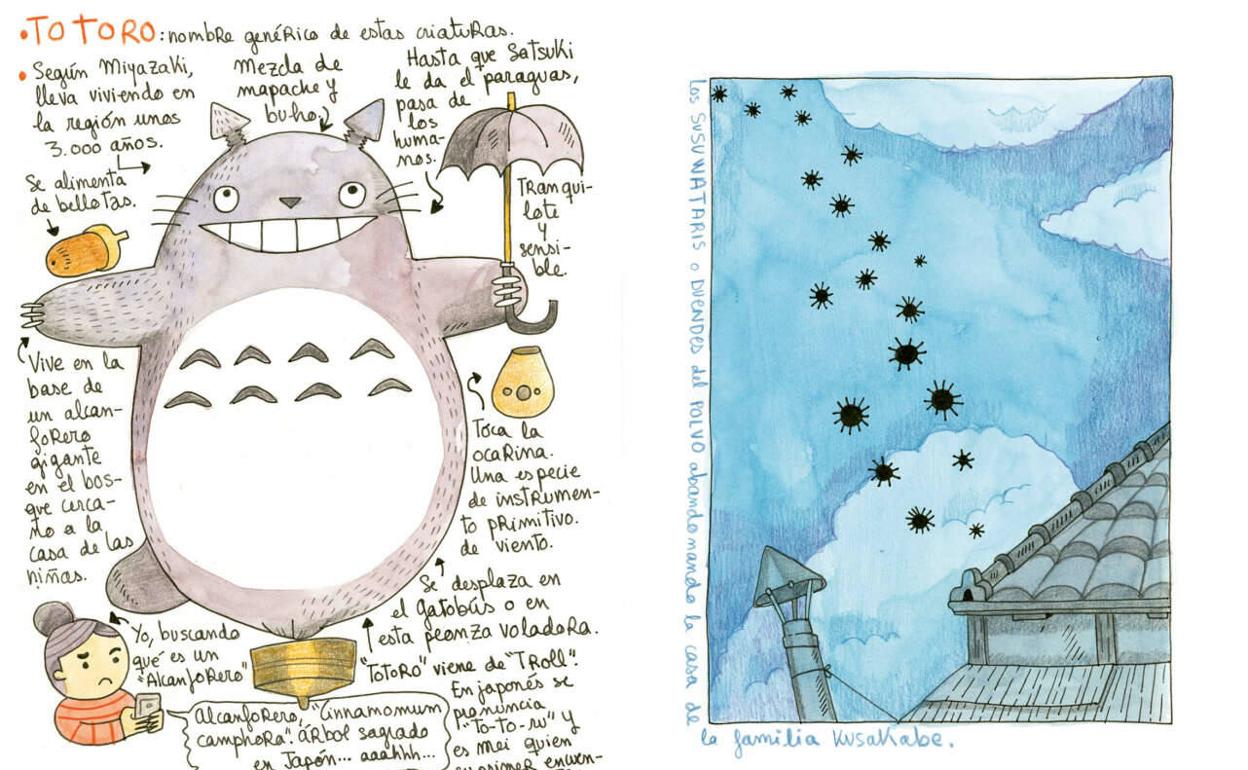 •TOTORO: nombre genérico de estas criaturas.
• Según Miyazaki,
lleva viviendo en
la región unos
3.000 años.
Mezcla de
mapache y
buho.
Hasta que Satsuki
le da el paraguas,
pasa de
los
huma-
nos.
Se alimenta
de bellotas.
Tranqui-
lote
y
sensi-
ble.
Vive en la
base de
un alcan-
forero
gigante
en el bos-
que cerca-
no a la
casa de las
niñas.
Toca la
ocarina.
Una especie
de instrumen-
to primitivo.
de viento.
Se desplaza en
el gatobús o en
esta peonza voladora.
Yo, buscando
qué es un
"Alcanforero"
"Totoro" viene de "Troll".
En japonés se
pronuncia
"To-to-ru" y
es Mei quien
su primer encuen-
Alcanforero, "Cinnamomum
camphora". árbol sagrado
en Japón... aaahhh...
Los SUSUWATARIS o DUENDES del POLVO abandonando la casa de
la familia Kusakabe.